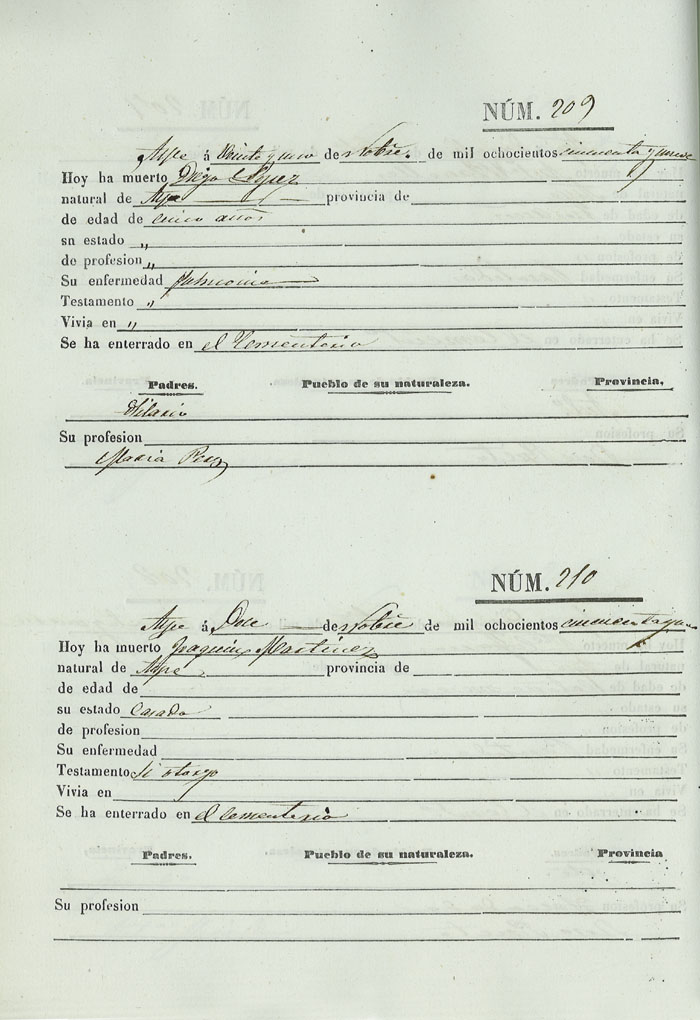 NÚM. 209
Aspe á Veinte y uno de Nobre. de mil ochocientos cincuenta y nueve
Hoy ha muerto Diego Lopez
natural de Aspe provincia de
de edad de cinco años
sn estado „
de profesion „
Su enfermedad pulmonia
Testamento „
Vivia en „
Se ha enterrado en el Cementerio
Padres. Pueblo de su naturaleza. Provincia.
Hilario
Su profesion
Maria Perez
NÚM. 210
Aspe á Doce de Nobre de mil ochocientos
Hoy ha muerto Joaquin Martinez
natural de Aspe provincia de
de edad de
su estado Casado
de profesion
Su enfermedad
Testamento si otorgo
Vivia en
Se ha enterrado en el Cementerio
Padres. Pueblo de su naturaleza. Provincia
Su profesion